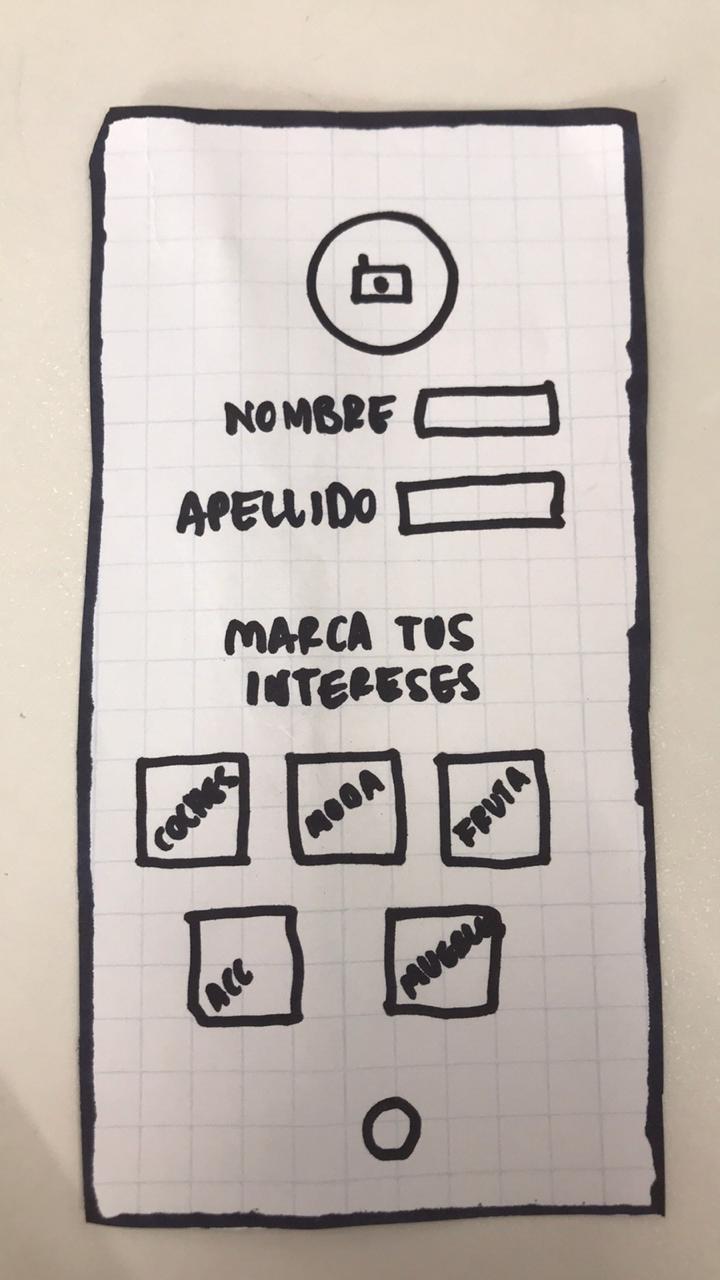 NOMBRE
APELLIDO
MARCA TUS
INTERESES
COCHES
MODA
FRUTA
ACC